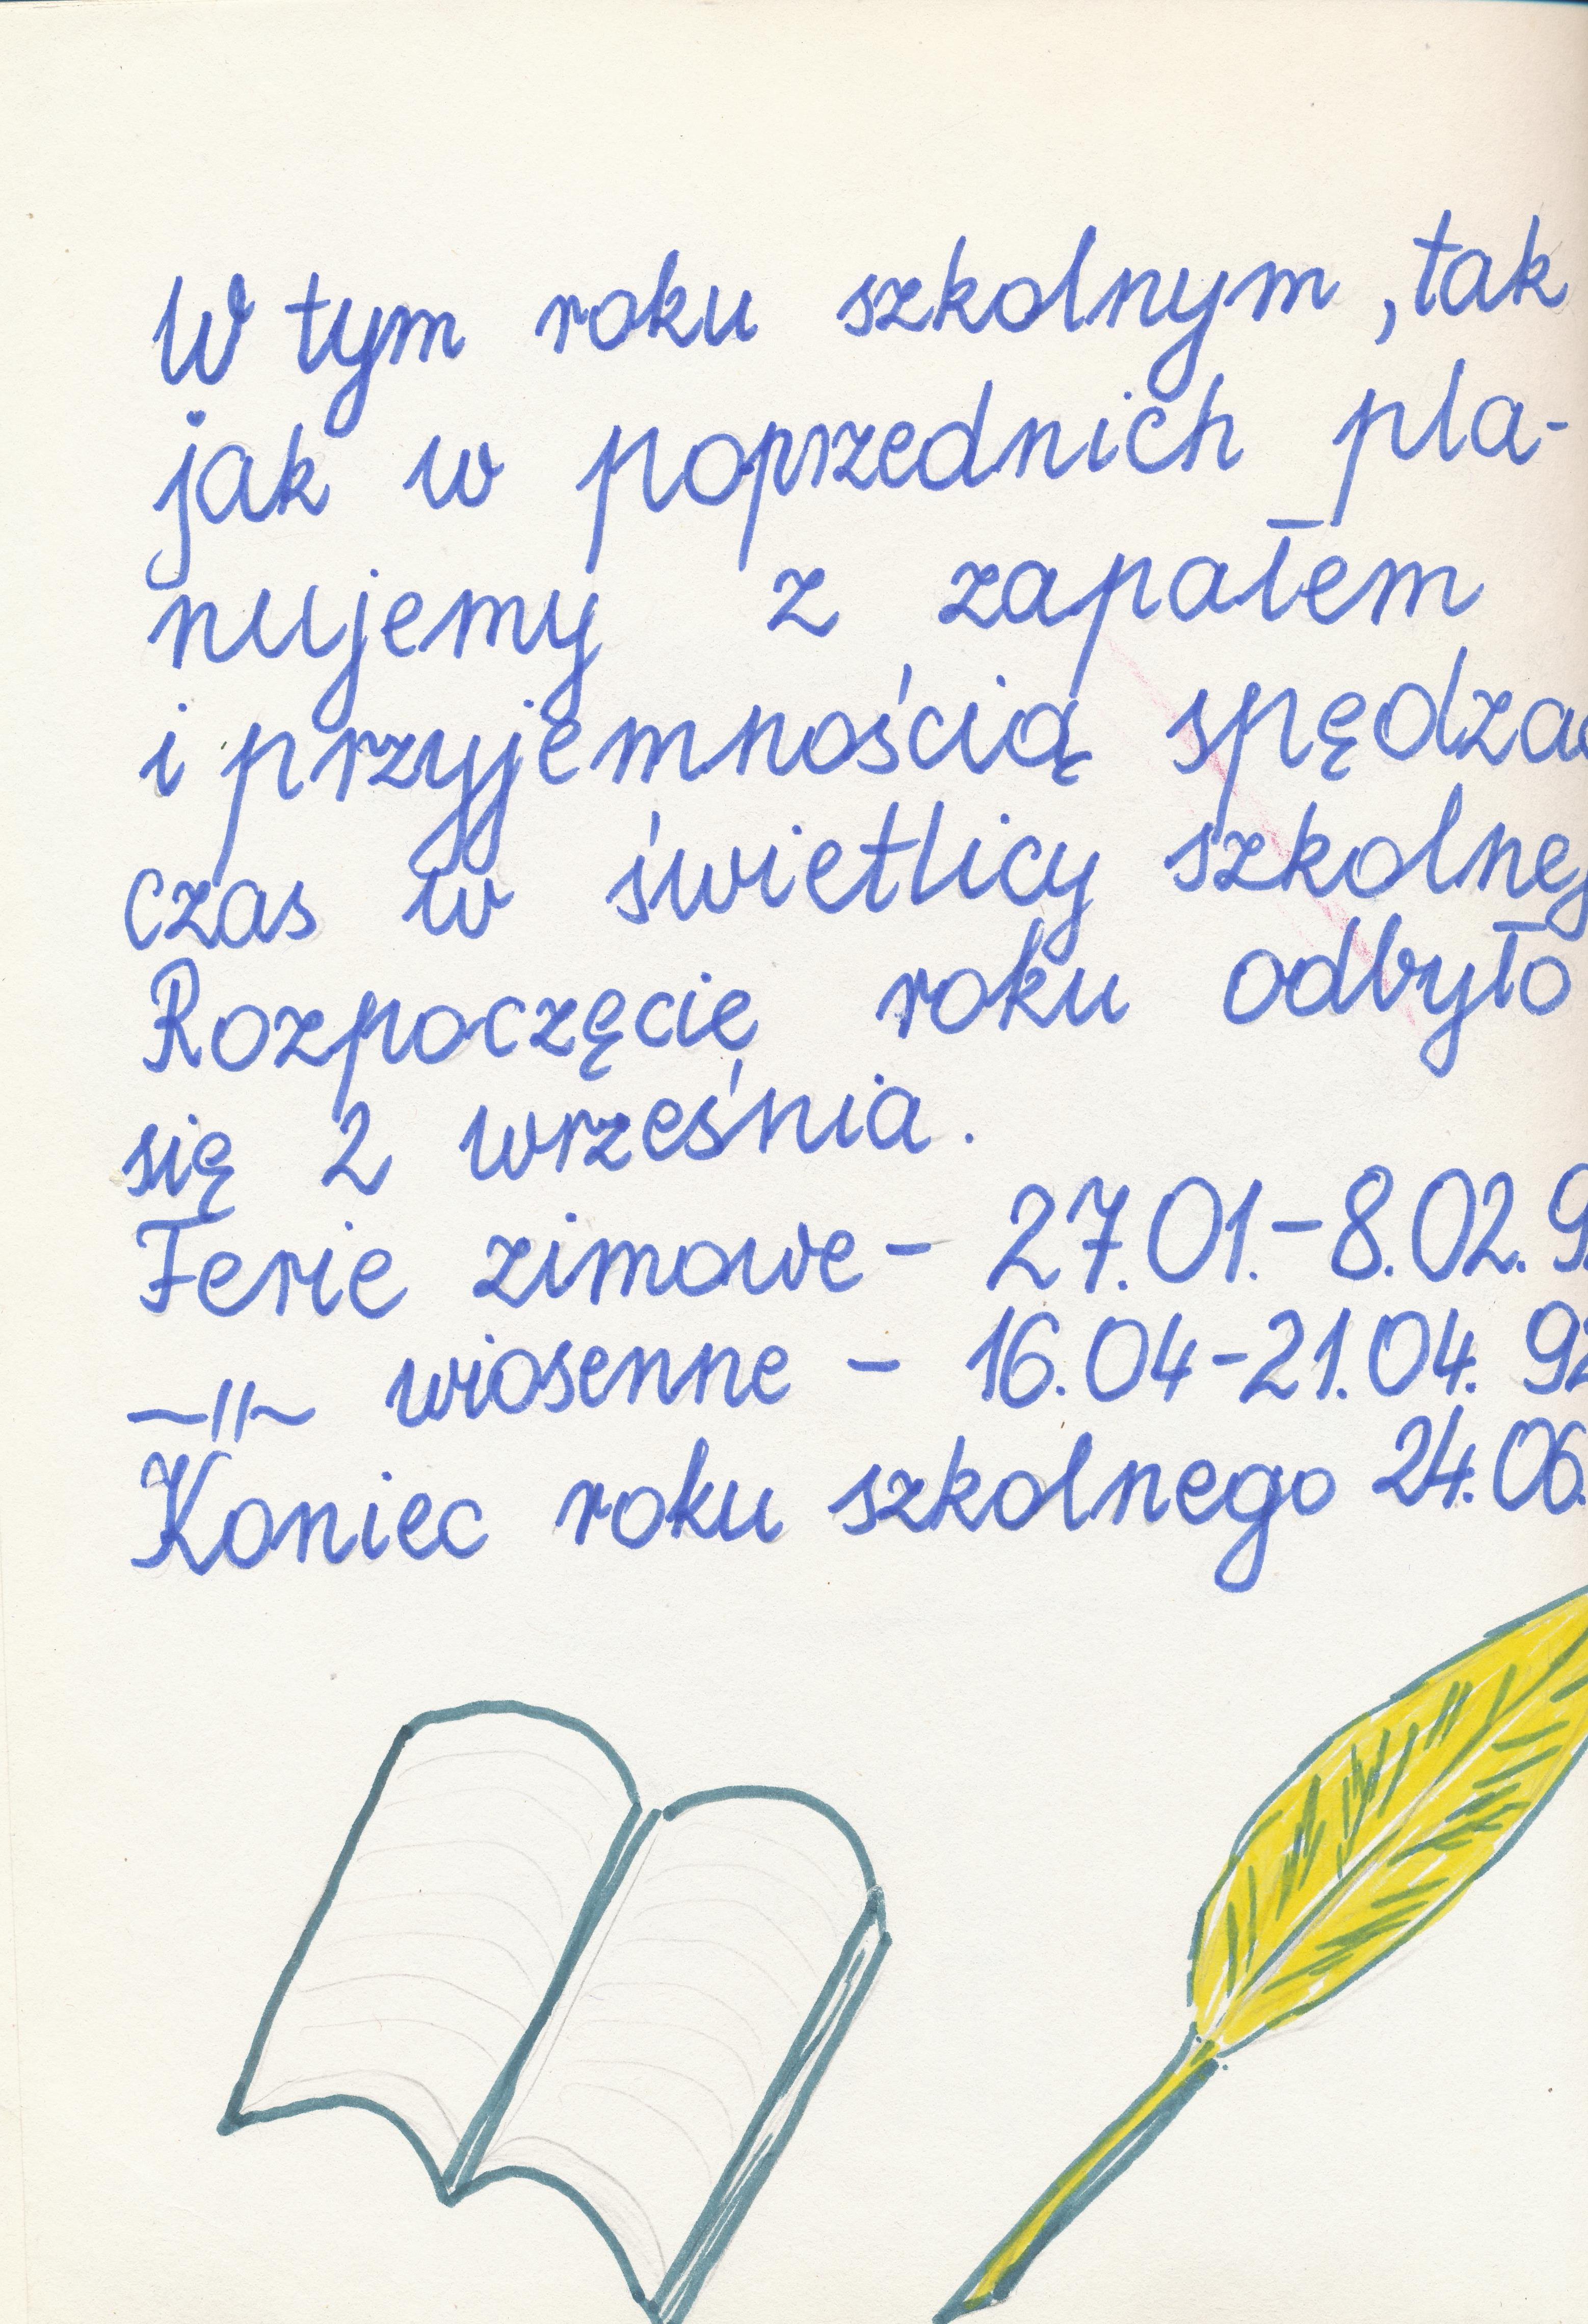 W tym roku szkolnym, tak
jak w poprzednich pla-
nujemy z zapałem
i przyjemnością spędza
czas w świetlicy szkolnej
Rozpoczęcie roku odbyło
się 2 września.
Ferie zimowe - 27.01.-8.02.9
-"- wiosenne - 16.04-21.04.92
Koniec roku szkolnego 24.06.